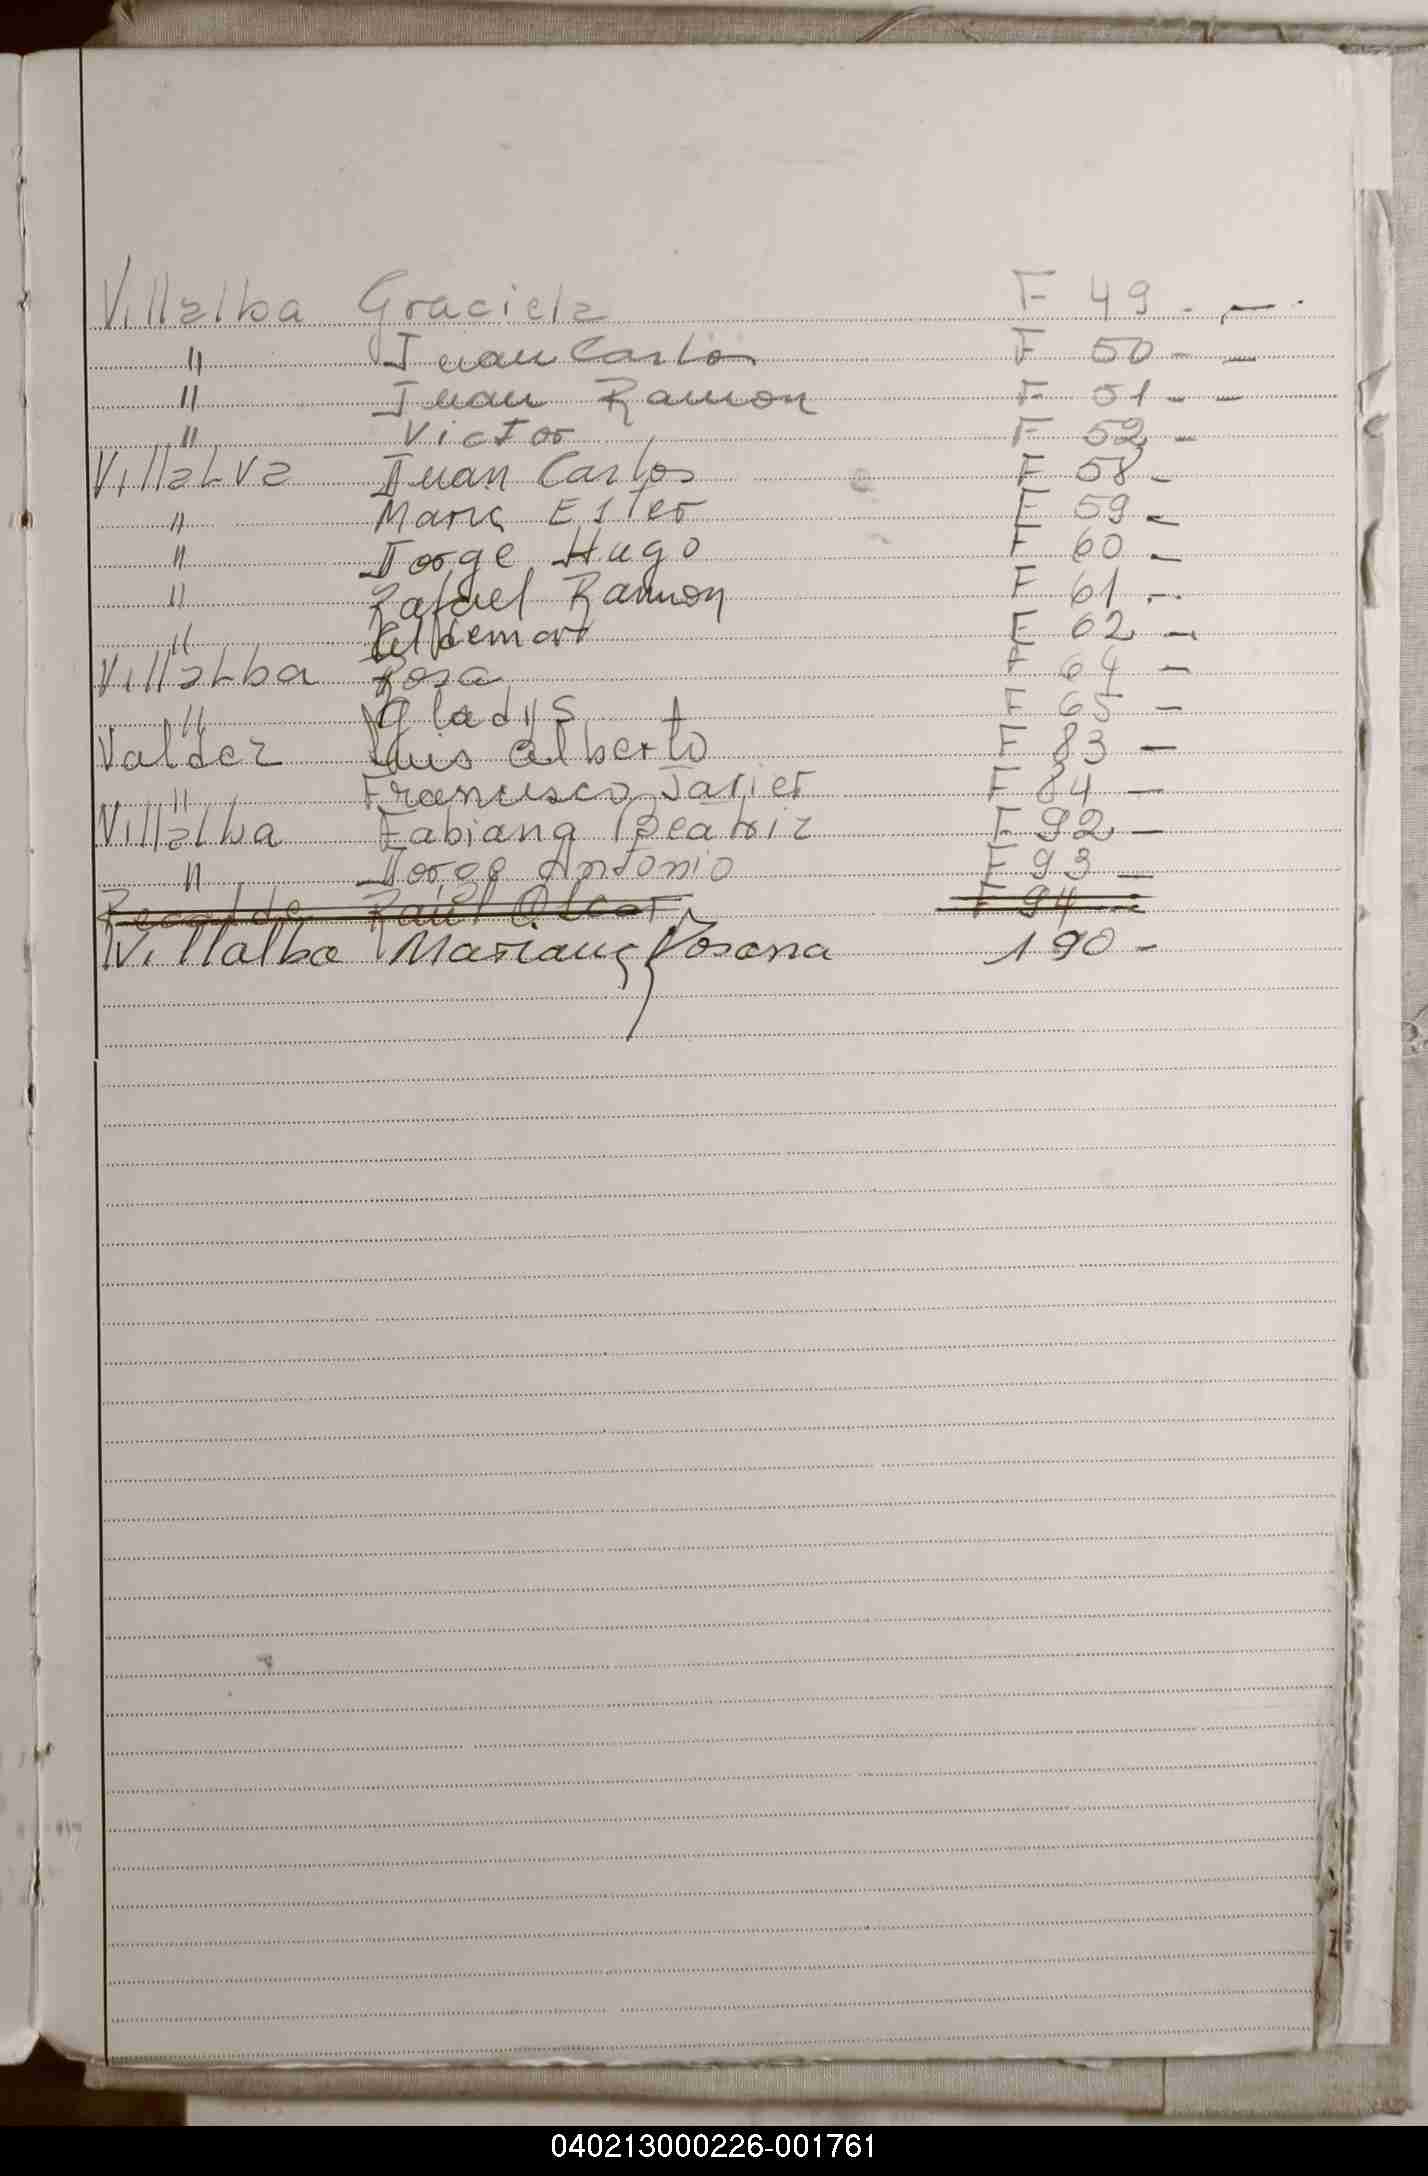 Villalba Graciela F 49 - -
" Juan Carlos F 50 - -
" Juan Ramon F 51 - -
" Victor F 52 -
Villalva Juan Carlos F 58 -
" Maria Ester F 59 -
" Jorge Hugo F 60 -
" Rafael Ramon F 61 -
" F 62 -
Villalba Rosa F 64 -
" Gladys F 65 -
Valdez Luis Alberto F 83 -
" Francisco Javier F 84 -
Villalba Fabiana Beatriz F 92 -
" Jorge Antonio F 93 -
Recalde Raúl Oscar F 94 -
Villalba Mariana Rosana 190 -
040213000226-001761